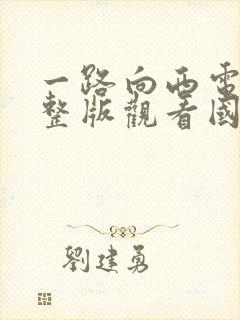 一路向西電
整版觀看國
劉建勇